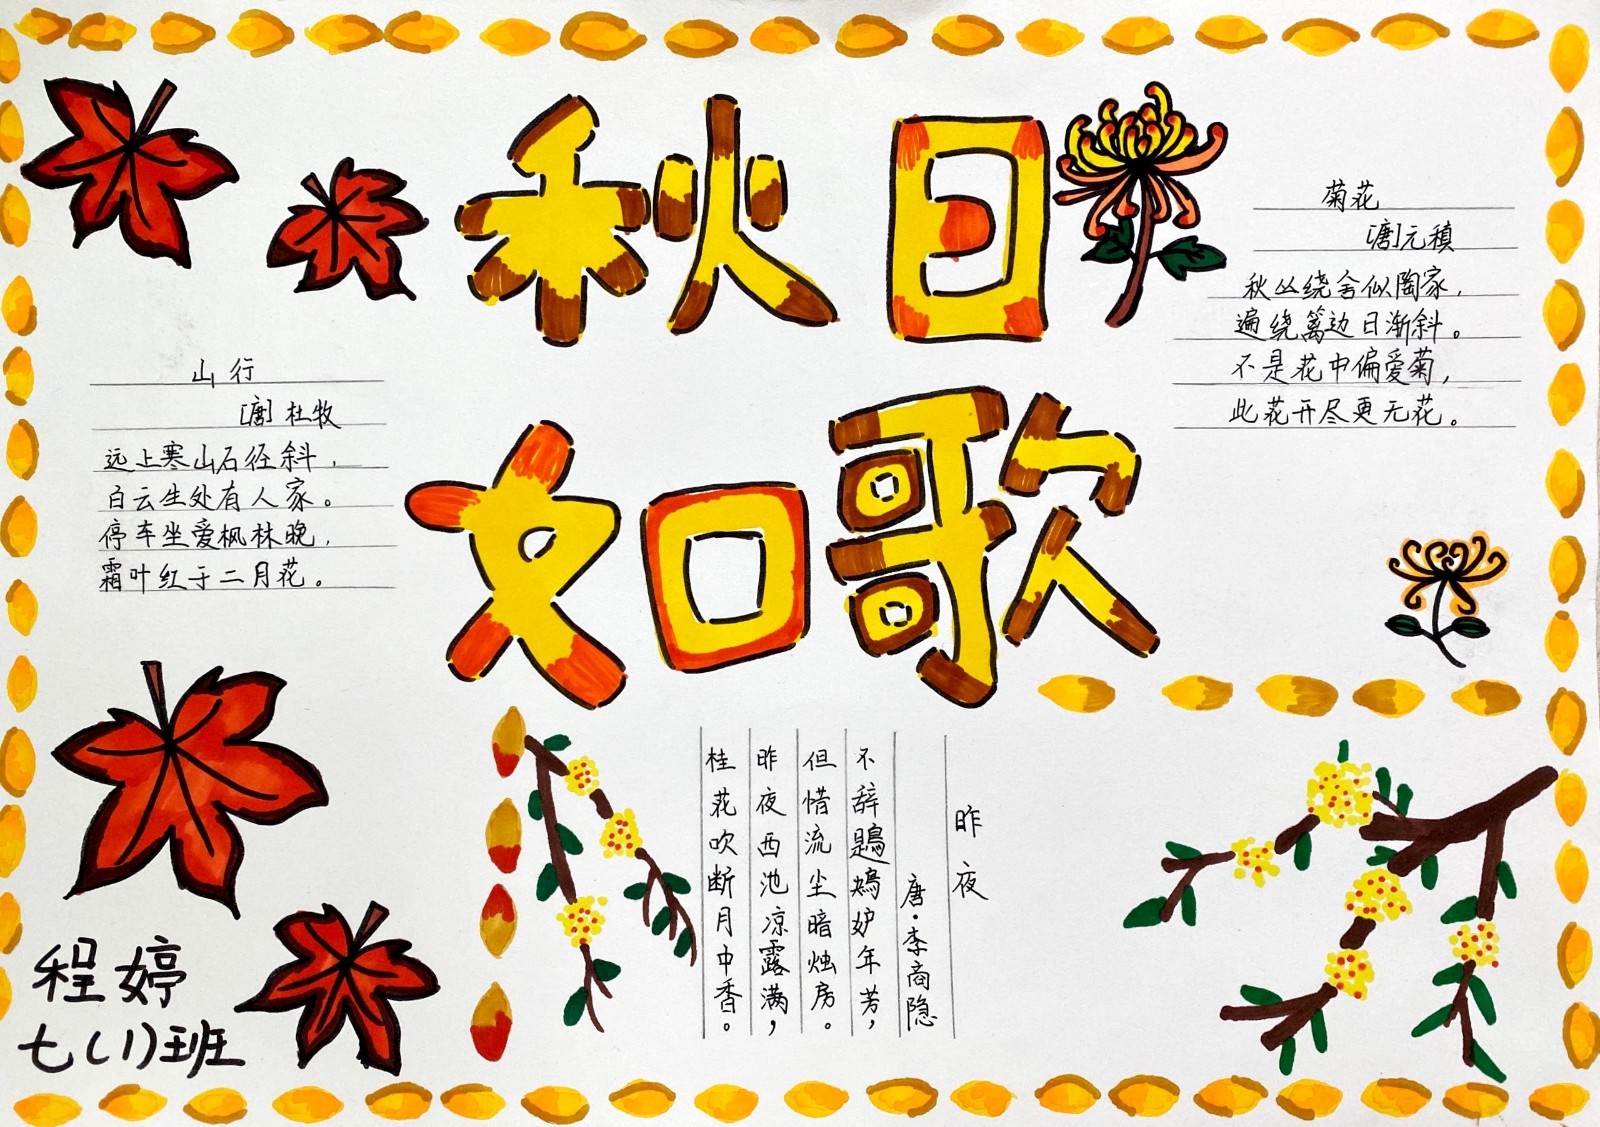 秋日
如歌
山行
[唐]杜牧
远上寒山石径斜，
白云生处有人家。
停车坐爱枫林晚，
霜叶红于二月花。
菊花
[唐]元稹
秋丛绕舍似陶家，
遍绕篱边日渐斜。
不是花中偏爱菊，
此花开尽更无花。
昨夜
唐·李商隐
不辞鶗鴂妒年芳，
但惜流尘暗烛房。
昨夜西池凉露满，
桂花吹断月中香。
程婷
七(1)班